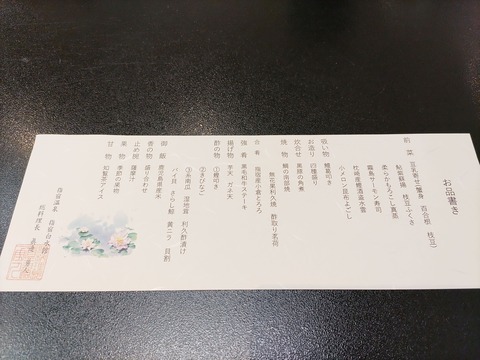 お品書き
前菜 豆乳寄せ(蟹身 百合根 枝豆)
鮎飴蘇揚 枝豆ふくさ
柔らかもろこし真蒸
霧島サーモン寿司
枕崎産鰹酒盗水雲
小メロン昆布よごし
吸い物 鱧葛叩き
お造り 四種盛り
炊合せ 黒豚の角煮
焼物 鯛の南部焼
無花果利久焼 酢取り茗荷
合肴 指宿産小倉とろろ
強肴 黒毛和牛ステーキ
揚げ物 芋天 ガネ天
酢の物 ①鰹叩き
②きびなご
③糸南瓜 湿地茸 利久酢漬け
バイ貝 さらし鯨 黄ニラ 貝割
御飯 鹿児島県産米
香の物 盛り合わせ
止め椀 薩摩汁
果物 季節の果物
甘物 知覧茶アイス
指宿温泉 指宿白水館
総料理長